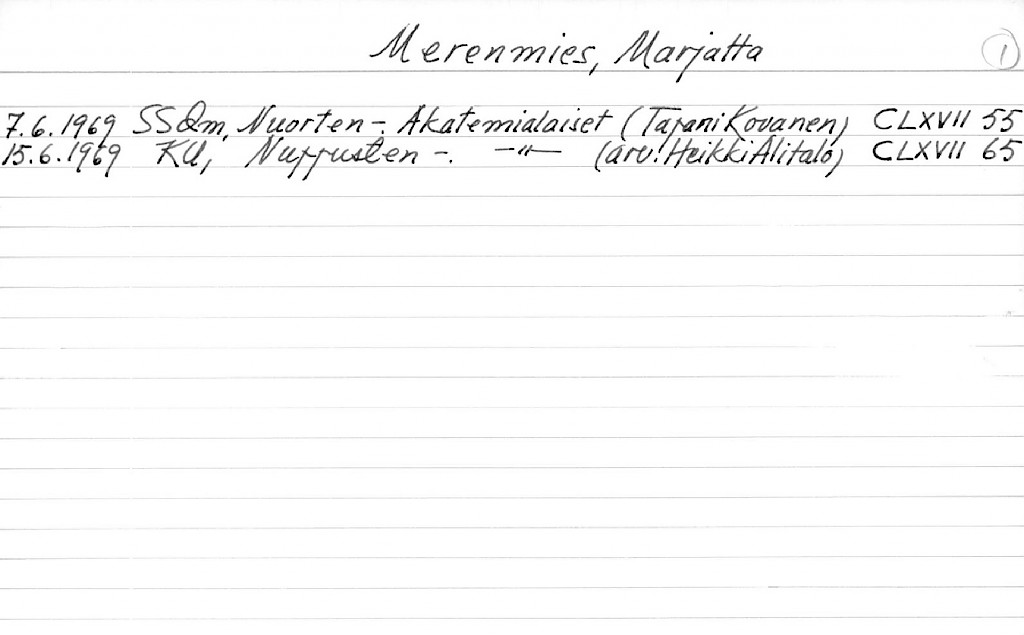 Merenmies, Marjatta 1
7.6.1969 SSdm, Nuorten-. Akatemialaiset (Tapani Kovanen) CLXVII 55
15.6.1969 KU, Nuppusten -. -"- (arv. Heikki Alitalo) CLXVII 65